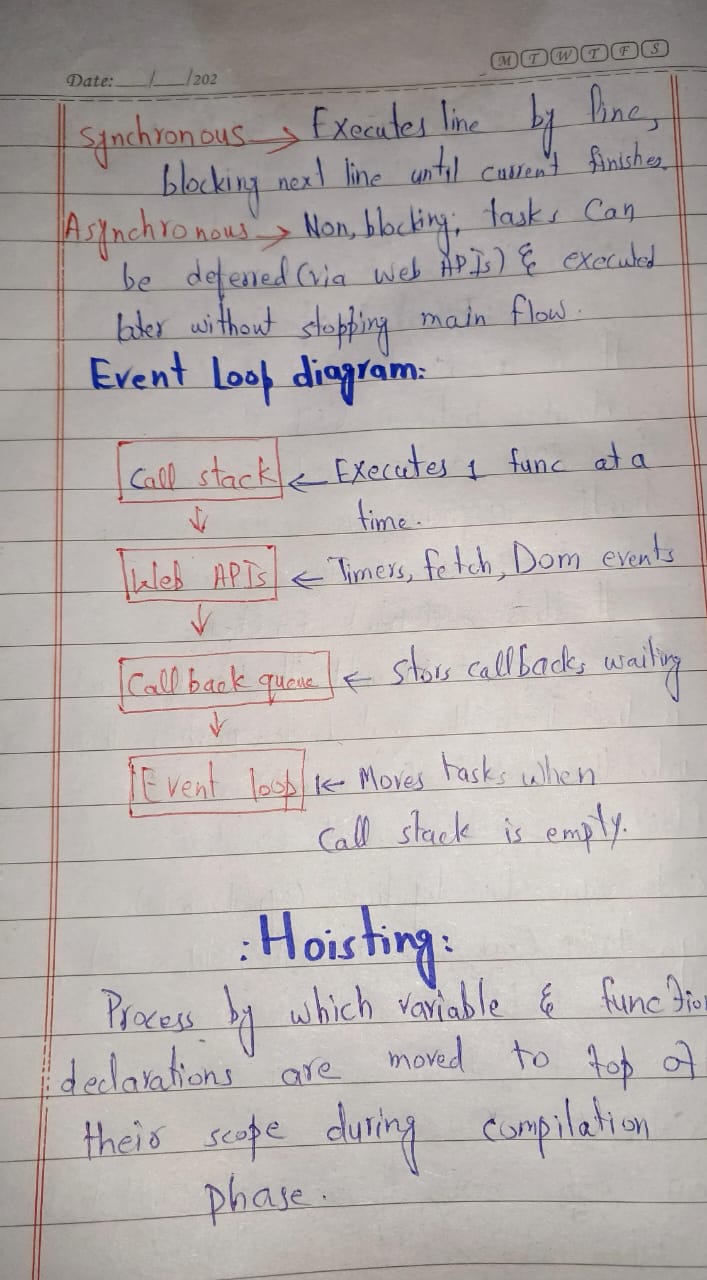 M T W T F S
Date: __/__/202
Synchronous → Executes line by line,
blocking next line until current finishes
Asynchronous → Non, blocking; tasks can
be deferred (via Web APIs) & executed
later without stopping main flow.
Event Loop diagram:
Call stack ← Executes 1 func at a
↓ time.
Web APIs ← Timers, fetch, Dom events
↓
Call back queue ← Stors callbacks waiting
↓
Event loop ← Moves tasks when
Call stack is empty.
:Hoisting:
Process by which variable & function
declarations are moved to top of
their scope during compilation
phase.